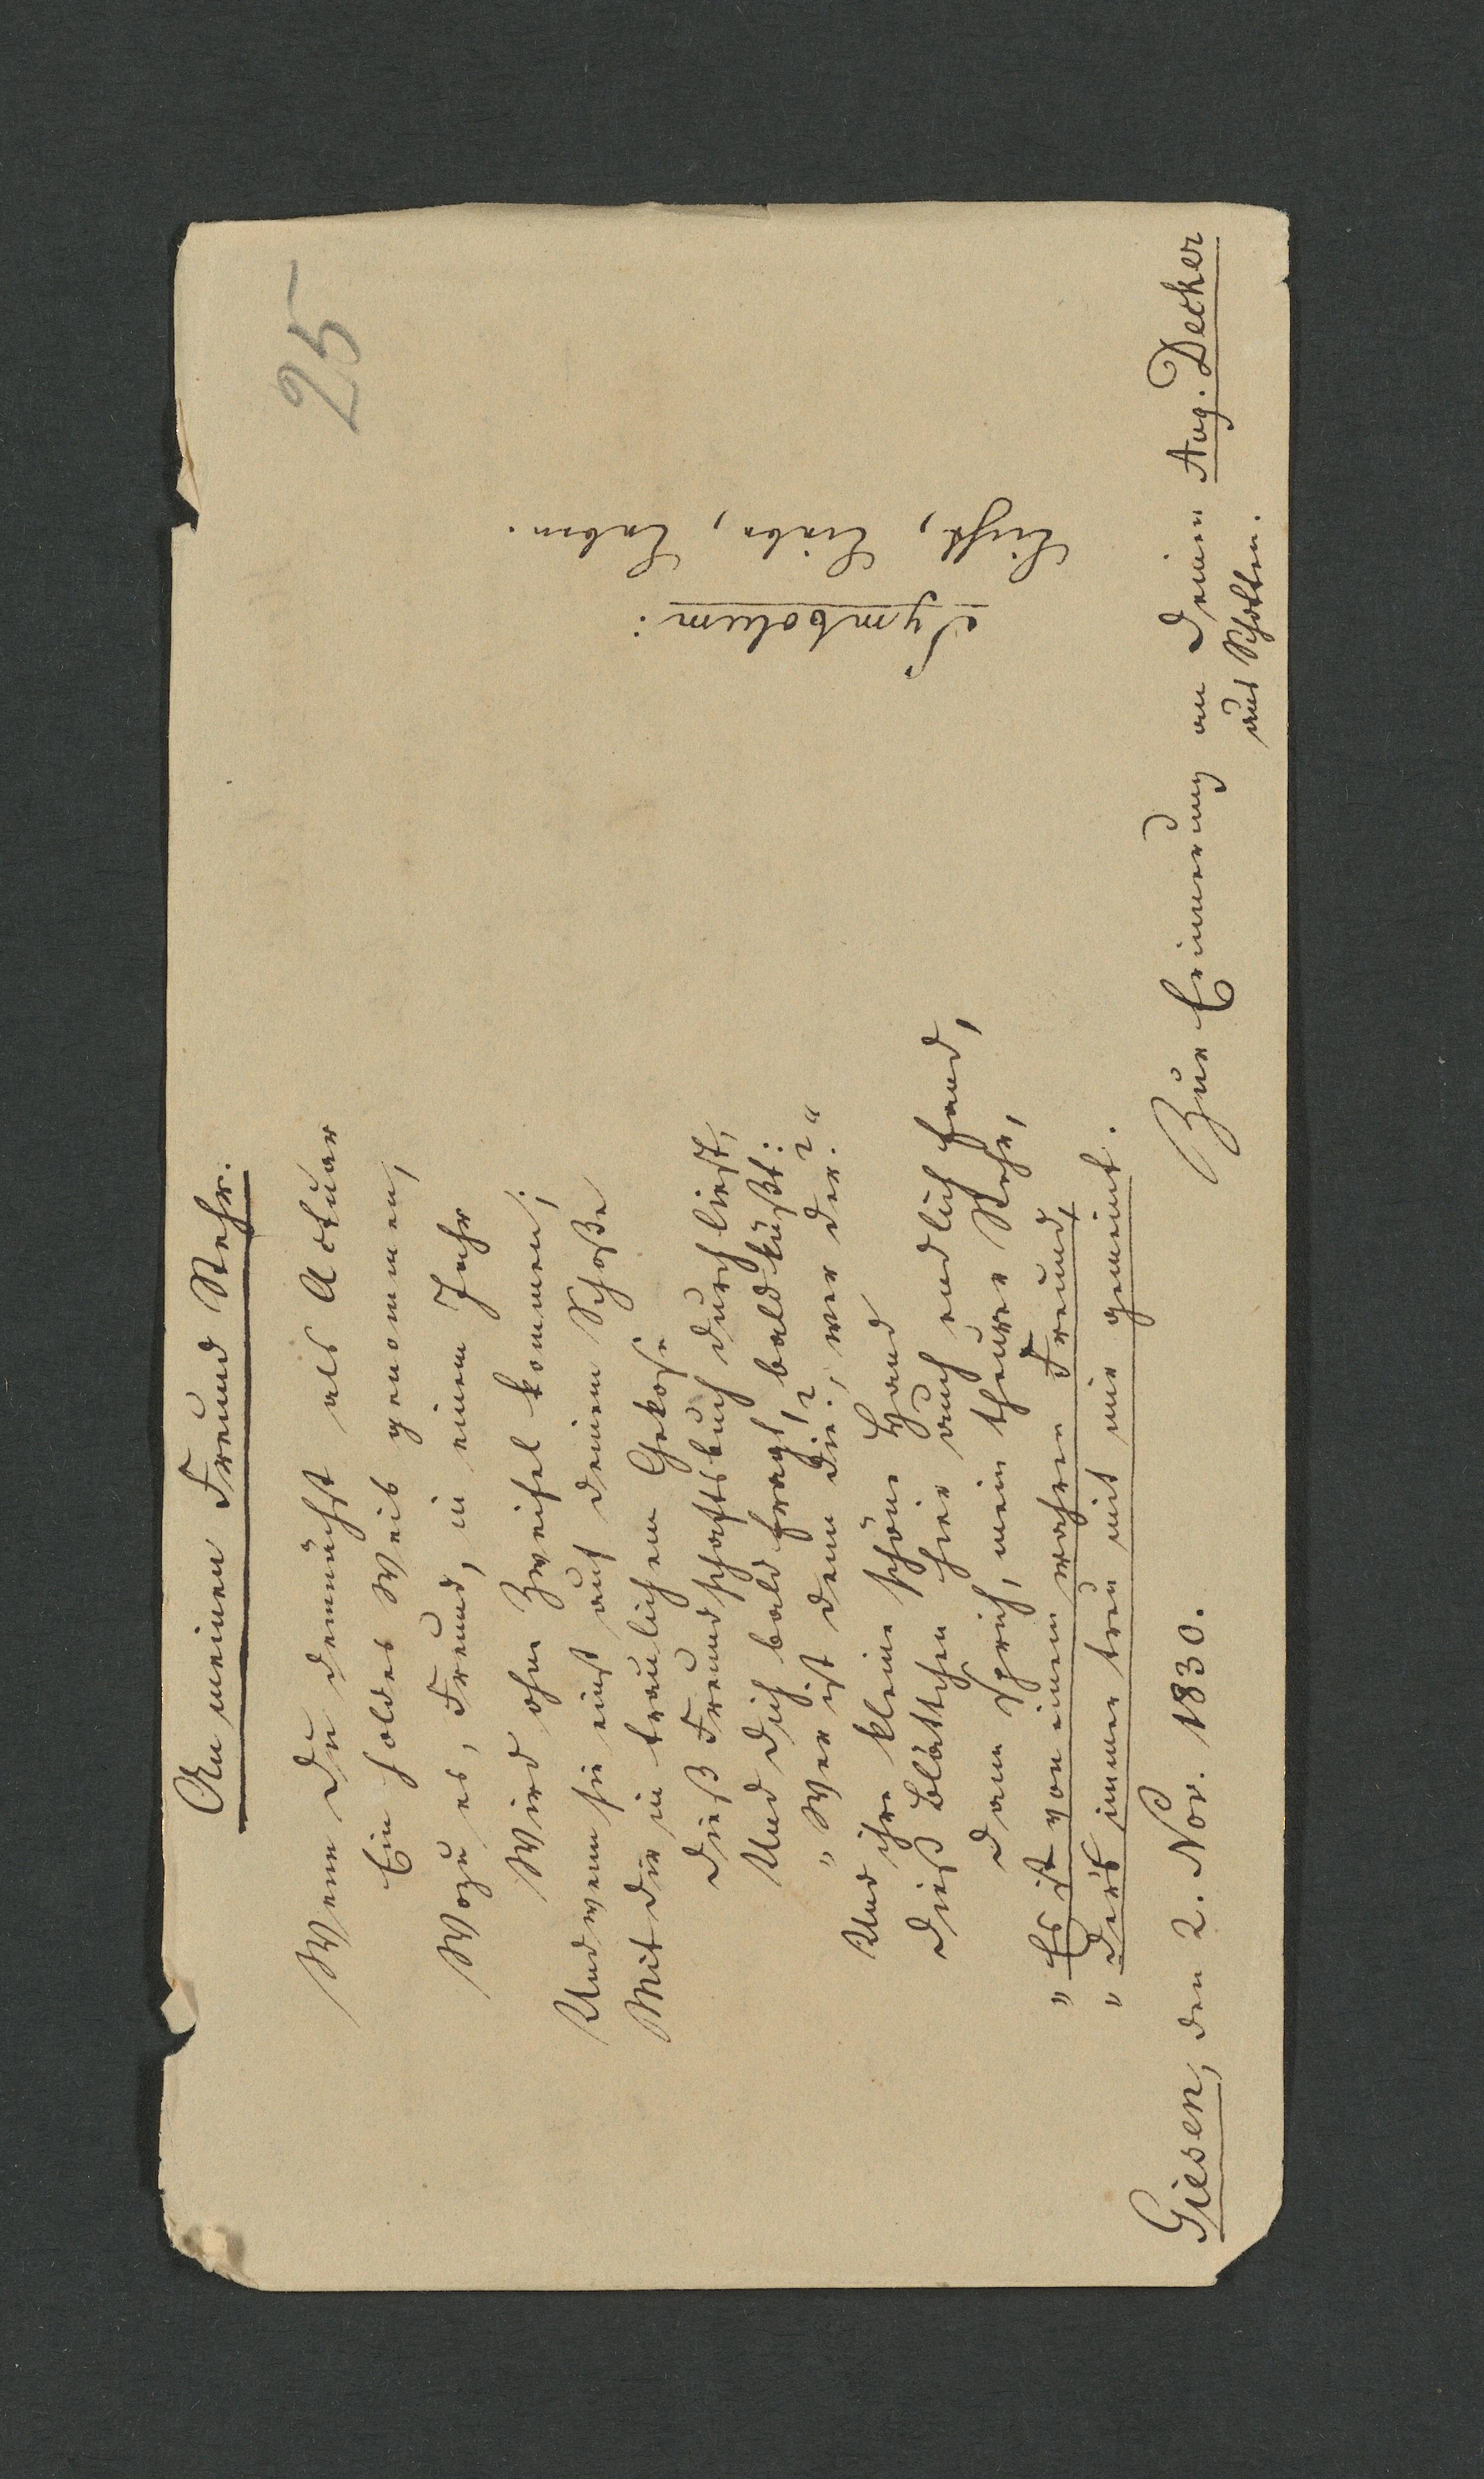 25
An meinen Freund Stehr.
Wenn Du demnächst als Actuar
Ein holdes Weib genommen,
Wozu es, Freund, in einem Jahr
Wird ohne Zweifel kommen;
Und wenn sie einst auf deinem Schoße
Mit dir in traulichem Gekose
Dieß Freundschaftsbuch durchliest,
Und dich bald fragt, bald küßt:
„Wer ist denn die?, wer der?“
Und ihre kleine schöne Hand
Dieß Blättchen hier auch endlich fand,
Dann sprich, mein theurer Stehr,
„Es ist von einem wahren Freund,
„Der's immer treu mit mir gemeint.
Giesen, den 2. Nov. 1830.
Zur Erinnerung an Deinen Aug. Decker
aus Schotten.
Symbolum:
Licht, Liebe, Leben.